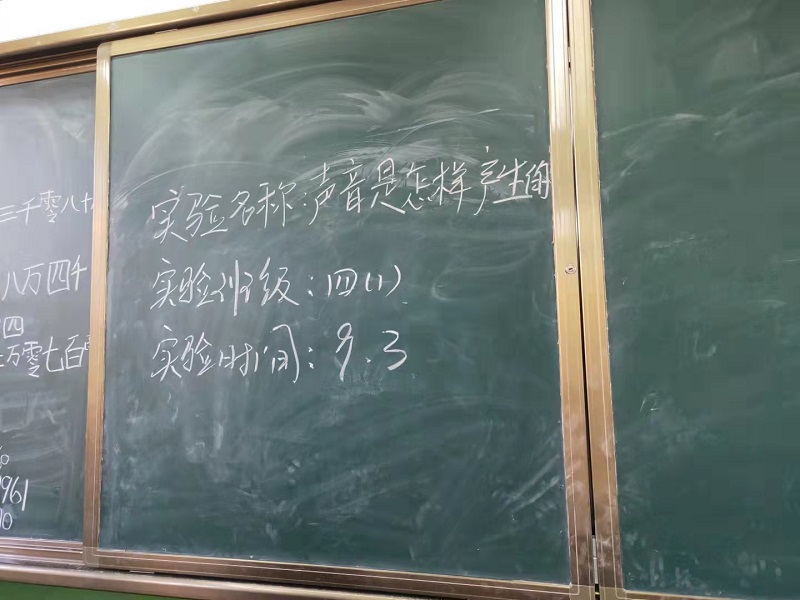 三千零八十
八万四千
四
万零七百零
961
实验名称:声音是怎样产生的
实验班级:四(1)
实验时间:9.3